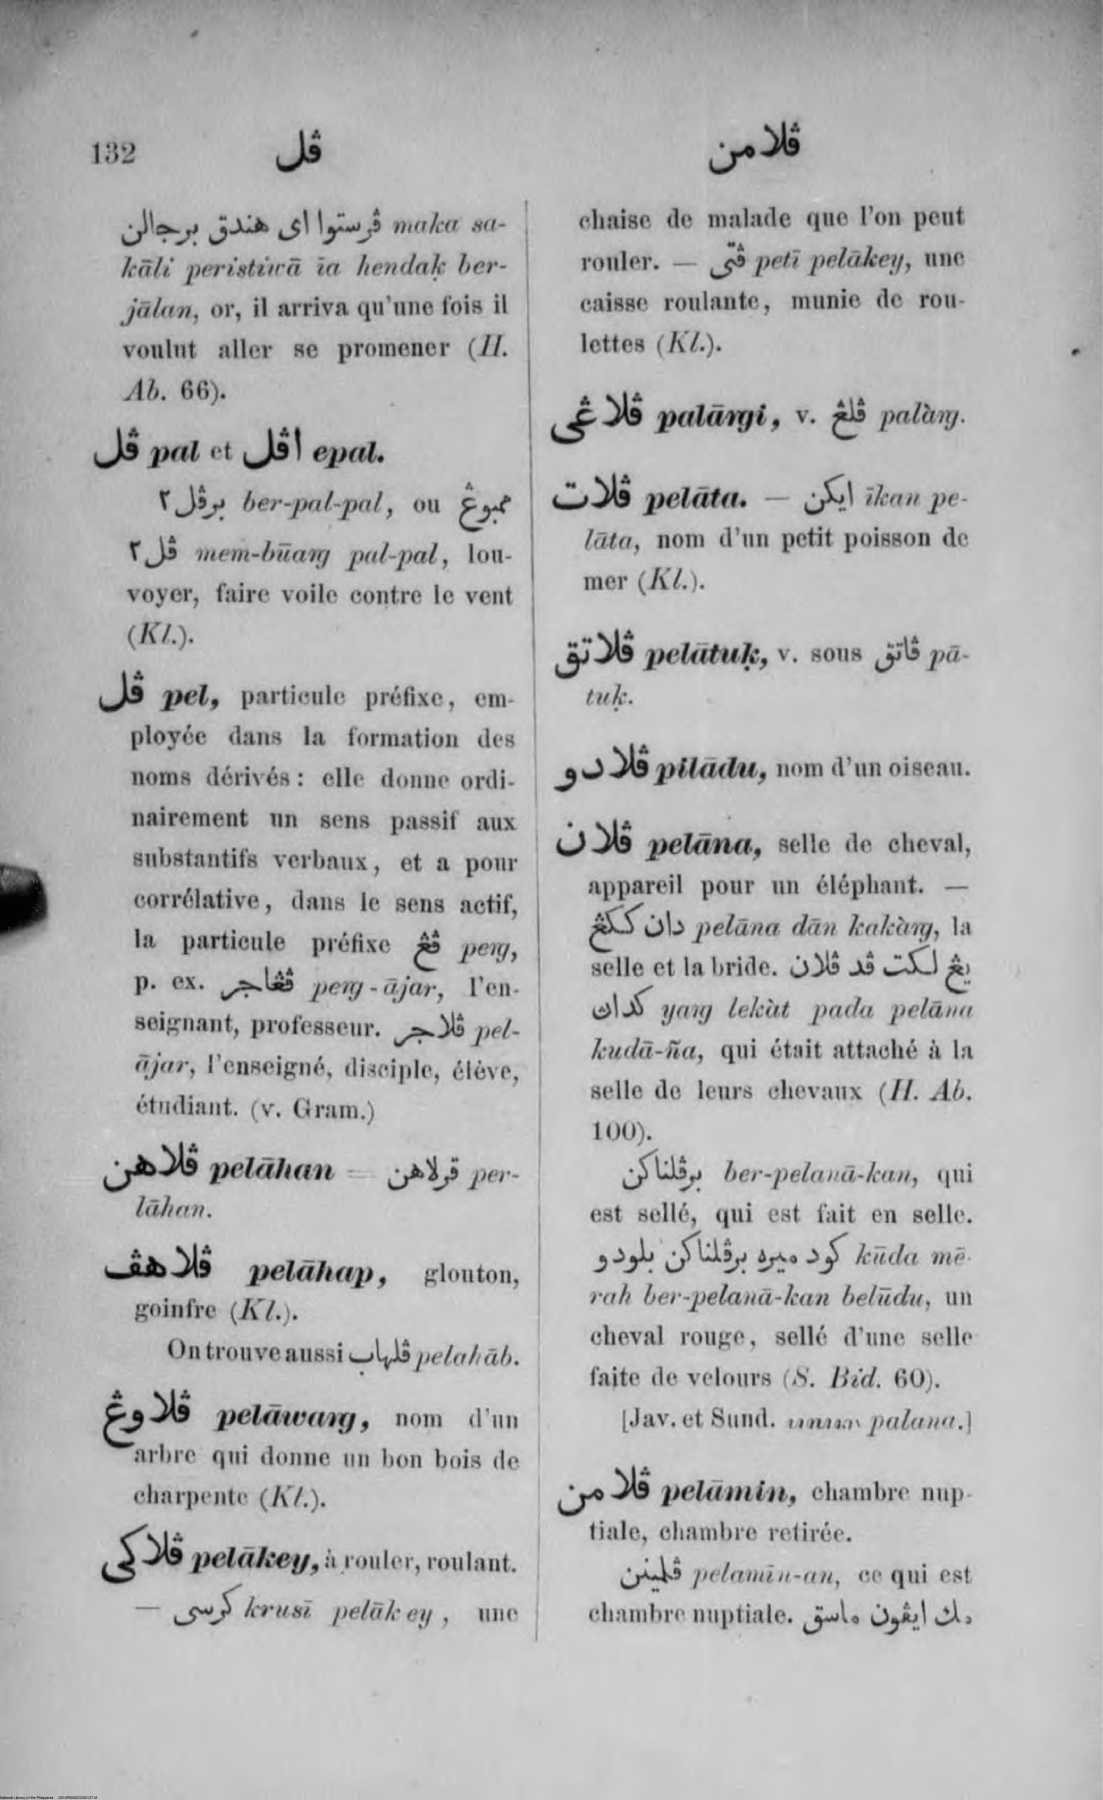 132
ڤل
ڤلامن
ڤرستوا اى هندق برجالن maka sa-
kāli peristiwā īa hendaḳ ber-
jālan, or, il arriva qu'une fois il
voulut aller se promener (H.
Ab. 66).
ڤل pal et اڤل epal.
برڤل٢ ber-pal-pal, ou ممبوڠ
ڤل٢ mem-būaƞg pal-pal, lou-
voyer, faire voile contre le vent
(Kl.).
ڤل pel, particule préfixe, em-
ployée dans la formation des
noms dérivés: elle donne ordi-
nairement un sens passif aux
substantifs verbaux, et a pour
corrélative, dans le sens actif,
la particule préfixe ڤڠ peƞg,
p. ex. ڤڠاجر peƞg-ājar, l'en-
seignant, professeur. ڤلاجر pel-
ājar, l'enseigné, disciple, élève,
étudiant. (v. Gram.)
ڤلاهن pelāhan = ڤرلاهن per-
lāhan.
ڤلاهڤ pelāhap, glouton,
goinfre (Kl.).
On trouve aussi ڤلهاب pelahāb.
ڤلاوڠ pelāwaƞg, nom d'un
arbre qui donne un bon bois de
charpente (Kl.).
ڤلاكى pelākey, à rouler, roulant.
— كرسى krusī pelākey, une
chaise de malade que l'on peut
rouler. — ڤتى petī pelākey, une
caisse roulante, munie de rou-
lettes (Kl.).
ڤلاڠى palāƞgi, v. ڤلڠ palàƞg.
ڤلات pelāta. — ايكن īkan pe-
lāta, nom d'un petit poisson de
mer (Kl.).
ڤلاتق pelātuḳ, v. sous ڤاتق pā-
tuḳ.
ڤلادو pilādu, nom d'un oiseau.
ڤلان pelāna, selle de cheval,
appareil pour un éléphant. —
دان ككڠ pelāna dān kakàƞg, la
selle et la bride. يڠ لكت ڤد ڤلان
كداڽ yaƞg lekàt pada pelāna
kudā-ña, qui était attaché à la
selle de leurs chevaux (H. Ab.
100).
برڤلناكن ber-pelanā-kan, qui
est sellé, qui est fait en selle.
كود ميره برڤلناكن بلودو kūda mē-
rah ber-pelanā-kan belūdu, un
cheval rouge, sellé d'une selle
faite de velours (S. Bid. 60).
[Jav. et Sund. palana.]
ڤلامن pelāmin, chambre nup-
tiale, chambre retirée.
ڤلمينن pelamīn-an, ce qui est
chambre nuptiale. دك ايڤون ماسق